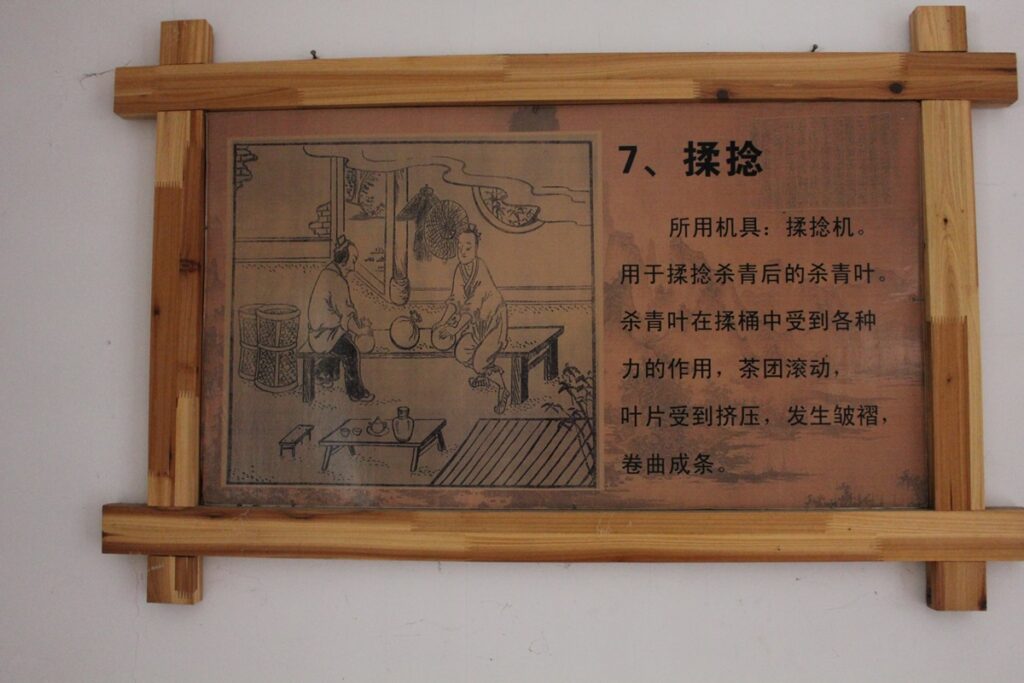 7、揉捻
所用机具：揉捻机。
用于揉捻杀青后的杀青叶。
杀青叶在揉桶中受到各种
力的作用，茶团滚动，
叶片受到挤压，发生皱褶，
卷曲成条。